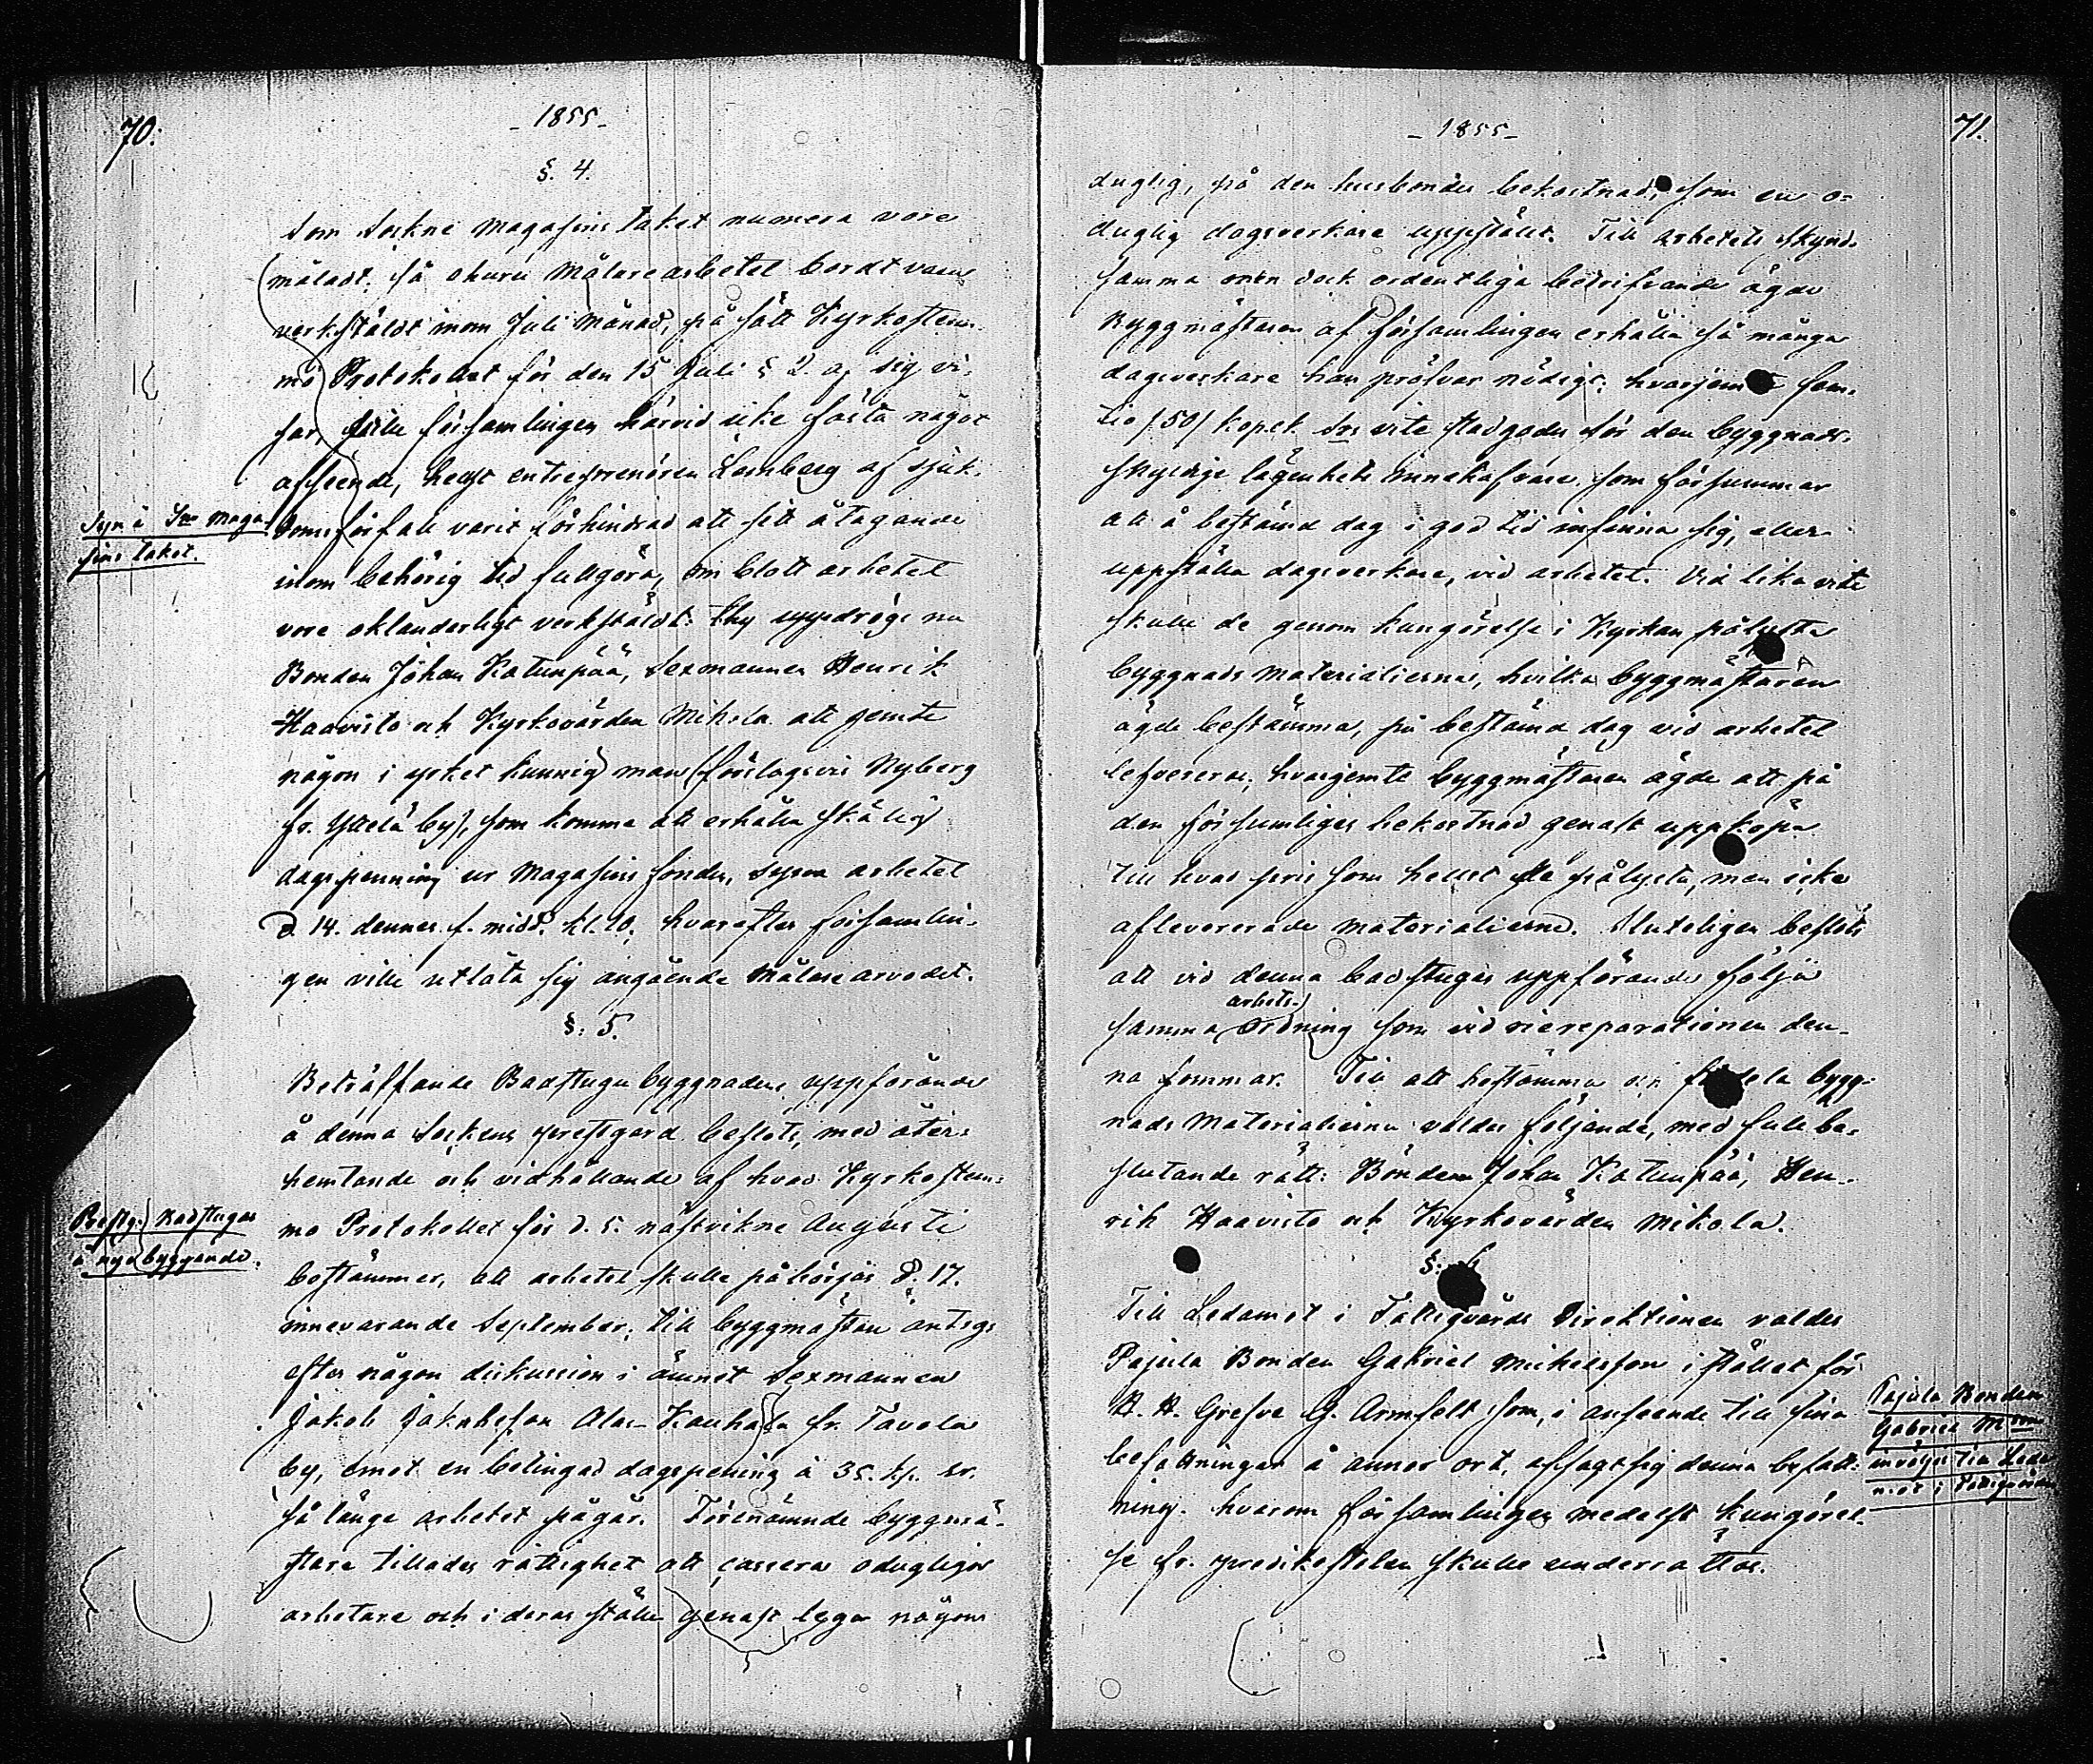 70.
- 1855 -
§. 4.
Som Sockne Magasins taket numera vore
måladt, så ehuru Målarearbetet bordt vara
verkstäldt inom Juli Månad, på sätt Kyrkostäm-
mo Protokollet för den 15 Juli § 2. af sig vi-
sar, ville församlingen härvid icke fästa något
afseende, helst entreprenören Lernberg af sjuk-
Syn å Sne Maga-
sins taket.
doms förfall varit förhindrad att sitt åtagande
inom behörig tid fullgöra, om blott arbetet
vore oklanderligt verkstäldt: thy uppdrogs nu
Bonden Johan Katunpää, Sexmannen Henrik
Haavisto och Kyrkovärden Mikola att jemte
någon i yrket kunnig man (förslagsvis Nyberg
fr. Yttelä by), som komme att erhålla skälig
dagspenning ur Magasins fonden, syna arbetet
d. 14. dennes f. midd. kl. 10, hvarefter församlin-
gen ville utlåta sig angående Målare arvodet.
§: 5.
Beträffande Badstugu byggnadens uppförande
å denna Sockens prestgård beslöts, med åter-
hemtande och vidhållande af hvad Kyrkostäm-
Prestg. Badstugas
å nyo byggande.
mo Protokollet för d. 5. nästvikne Augusti
bestämmer, att arbetet skulle påbörjas d. 17.
innevarande September, till byggmästare antogs
efter någon diskussion i ämnet Sexmannen
Jakob Jakobsson Ala-Kauhala fr. Tavela
by, emot en betingad dagspening à 35. kp. Sr.
så länge arbetet pågår. Förenämnde byggmä-
stare tillades rättighet att cassera odugliga
arbetare och i deras ställe genast lega någon
71.
- 1855 -
duglig, på den husbondes bekostnad, som en o-
duglig dagsverkare uppstält. Till arbetets skynd-
samma men dock ordentliga bedrifvande ägde
Byggmästaren af församlingen erhålla så många
dagsverkare han pröfvar nödigt; hvarjemte fem-
tio /50/ kopek Srs vite stadgades för den byggnads-
skyldige lägenhets innehafvare, som försummar
att å bestämd dag i god tid infinna sig, eller
uppställa dagsverkare, vid arbetet. Vid lika vite
skulle de genom kungörelse i Kyrkan pålysta
byggnads Materialierna, hvilka byggmästaren
ägde bestämma, på bestämd dag vid arbetet
lefvereras, hvarjemte byggmästaren ägde att på
den försumliges bekostnad genast uppköpa
till hvad pris som helst de pålysta, men icke
aflevererade materialierna. Sluteligen beslöts
att vid denna badstugas uppförande följa
samma arbets-ordning som vid riereparationen den-
na sommar. Till att bestämma och fördela bygg-
nads Materialierna valdes följande, med full be-
slutande rätt: Bönderna Johan Katunpää, Hen-
rik Haavisto och Kyrkovärden Mikola.
§: 6
Till Ledamot i Fattigvårds Direktionen valdes
Pajula Bonden Gabriel Mickelsson i stället för
H. H. Grefve G. Armfelt som, i anseende till sina
Pajula Bonden
Gabriel Mson
inväljes till Leda-
mot i Fattigvården
befattningar å annor ort, afsagt sig denna befatt-
ning. hvarom församlingen medelst kungörel-
se fr. predikstolen skulle underrättas.